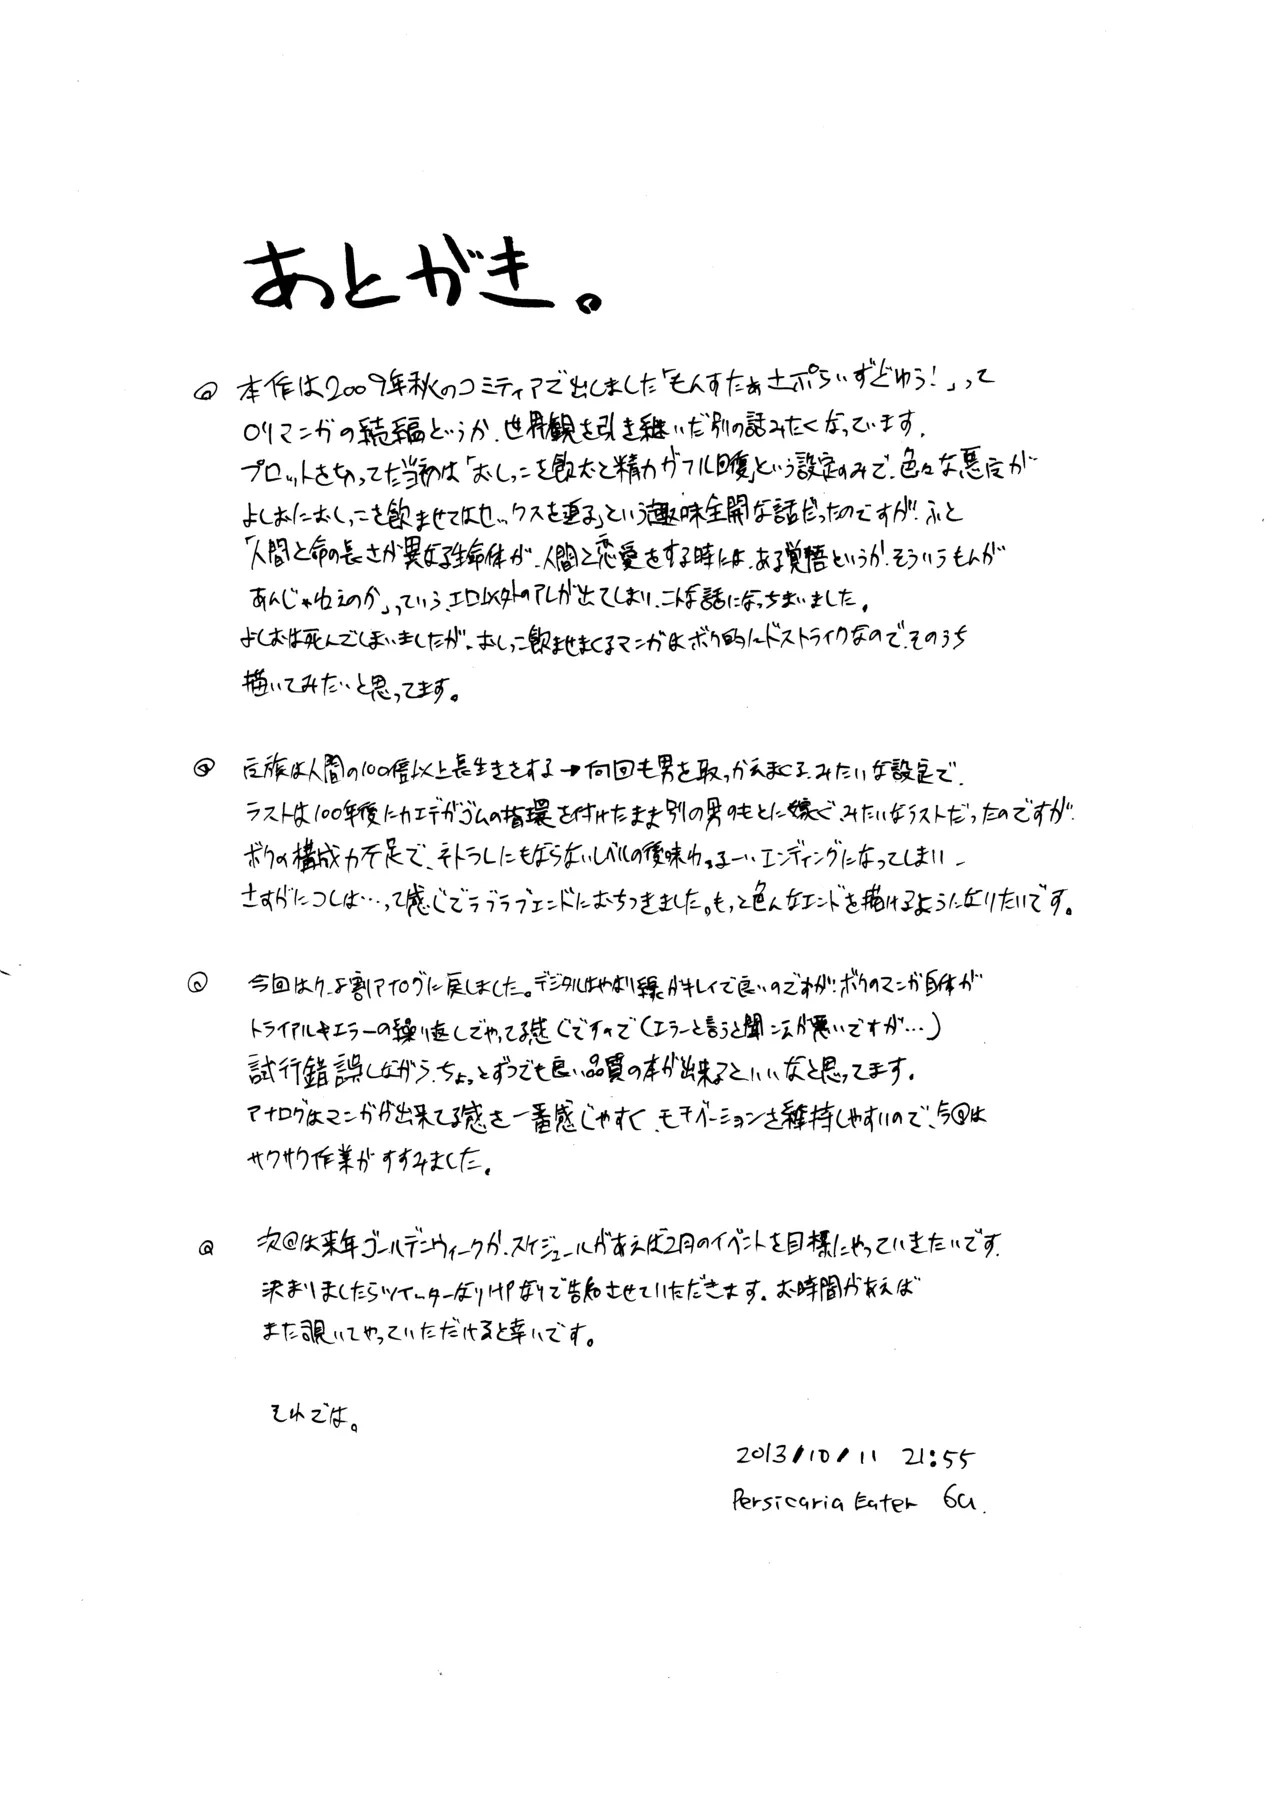 あとがき。
本作は2009年秋のコミティアで出しました「もんすたぁさぷらいずどゆう!」って
ロリマンガの続編というか、世界観を引き継いだ別の話みたくなっています。
プロットをきってた当初は「おしっこを飲むと精力がフル回復」という設定のみで、色々な悪魔が
よしおにおしっこを飲ませてはセックスを重ねるという趣味全開な話だったのですが、ふと
「人間と命の長さが異なる生命体が、人間と恋愛をする時には、ある覚悟というか、そういうもんが
あんじゃねえのか」っていう、エロ以外のアレが出てしまい、こんな話になっちまいました。
よしおは死んでしまいましたが、おしっこ飲ませまくるマンガはボク的にドストライクなので、そのうち
描いてみたいと思ってます。
族は人間の100倍以上長生きをする→何回も男を取っかえまくる、みたいな設定で、
ラストは100年後にカエデがゴムの指環を付けたまま別の男のもとに嫁ぐ、みたいなラストだったのですが、
ボクの構成力不足で、ネトラレにもならないレベルの後味わるーいエンディングになってしまい、
さすがにコレは…って感じでラブラブエンドにおちつきました。もっと色んなエンドを描けるようになりたいです。
今回は9.5割アナログに戻しました。デジタルはやはり線がキレイで良いのですが、ボクのマンガ自体が
トライアル&エラーの繰り返しでやってる感じですので(エラーと言うと聞こえが悪いですが…)
試行錯誤しながら、ちょっとずつでも良い品質の本が出来るといいなと思ってます。
アナログはマンガが出来てる感を一番感じやすく、モチベーションを維持しやすいので、今回は
サクサク作業がすすみました。
次回は来年ゴールデンウィークか、スケジュールがあえば2月のイベントを目標にやっていきたいです。
決まりましたらツイッターなりHPなりで告知させていただきます。お時間があえば
また覗いてやっていただけると幸いです。
それでは。
2013/10/11 21:55
Persicaria Eater 6u.